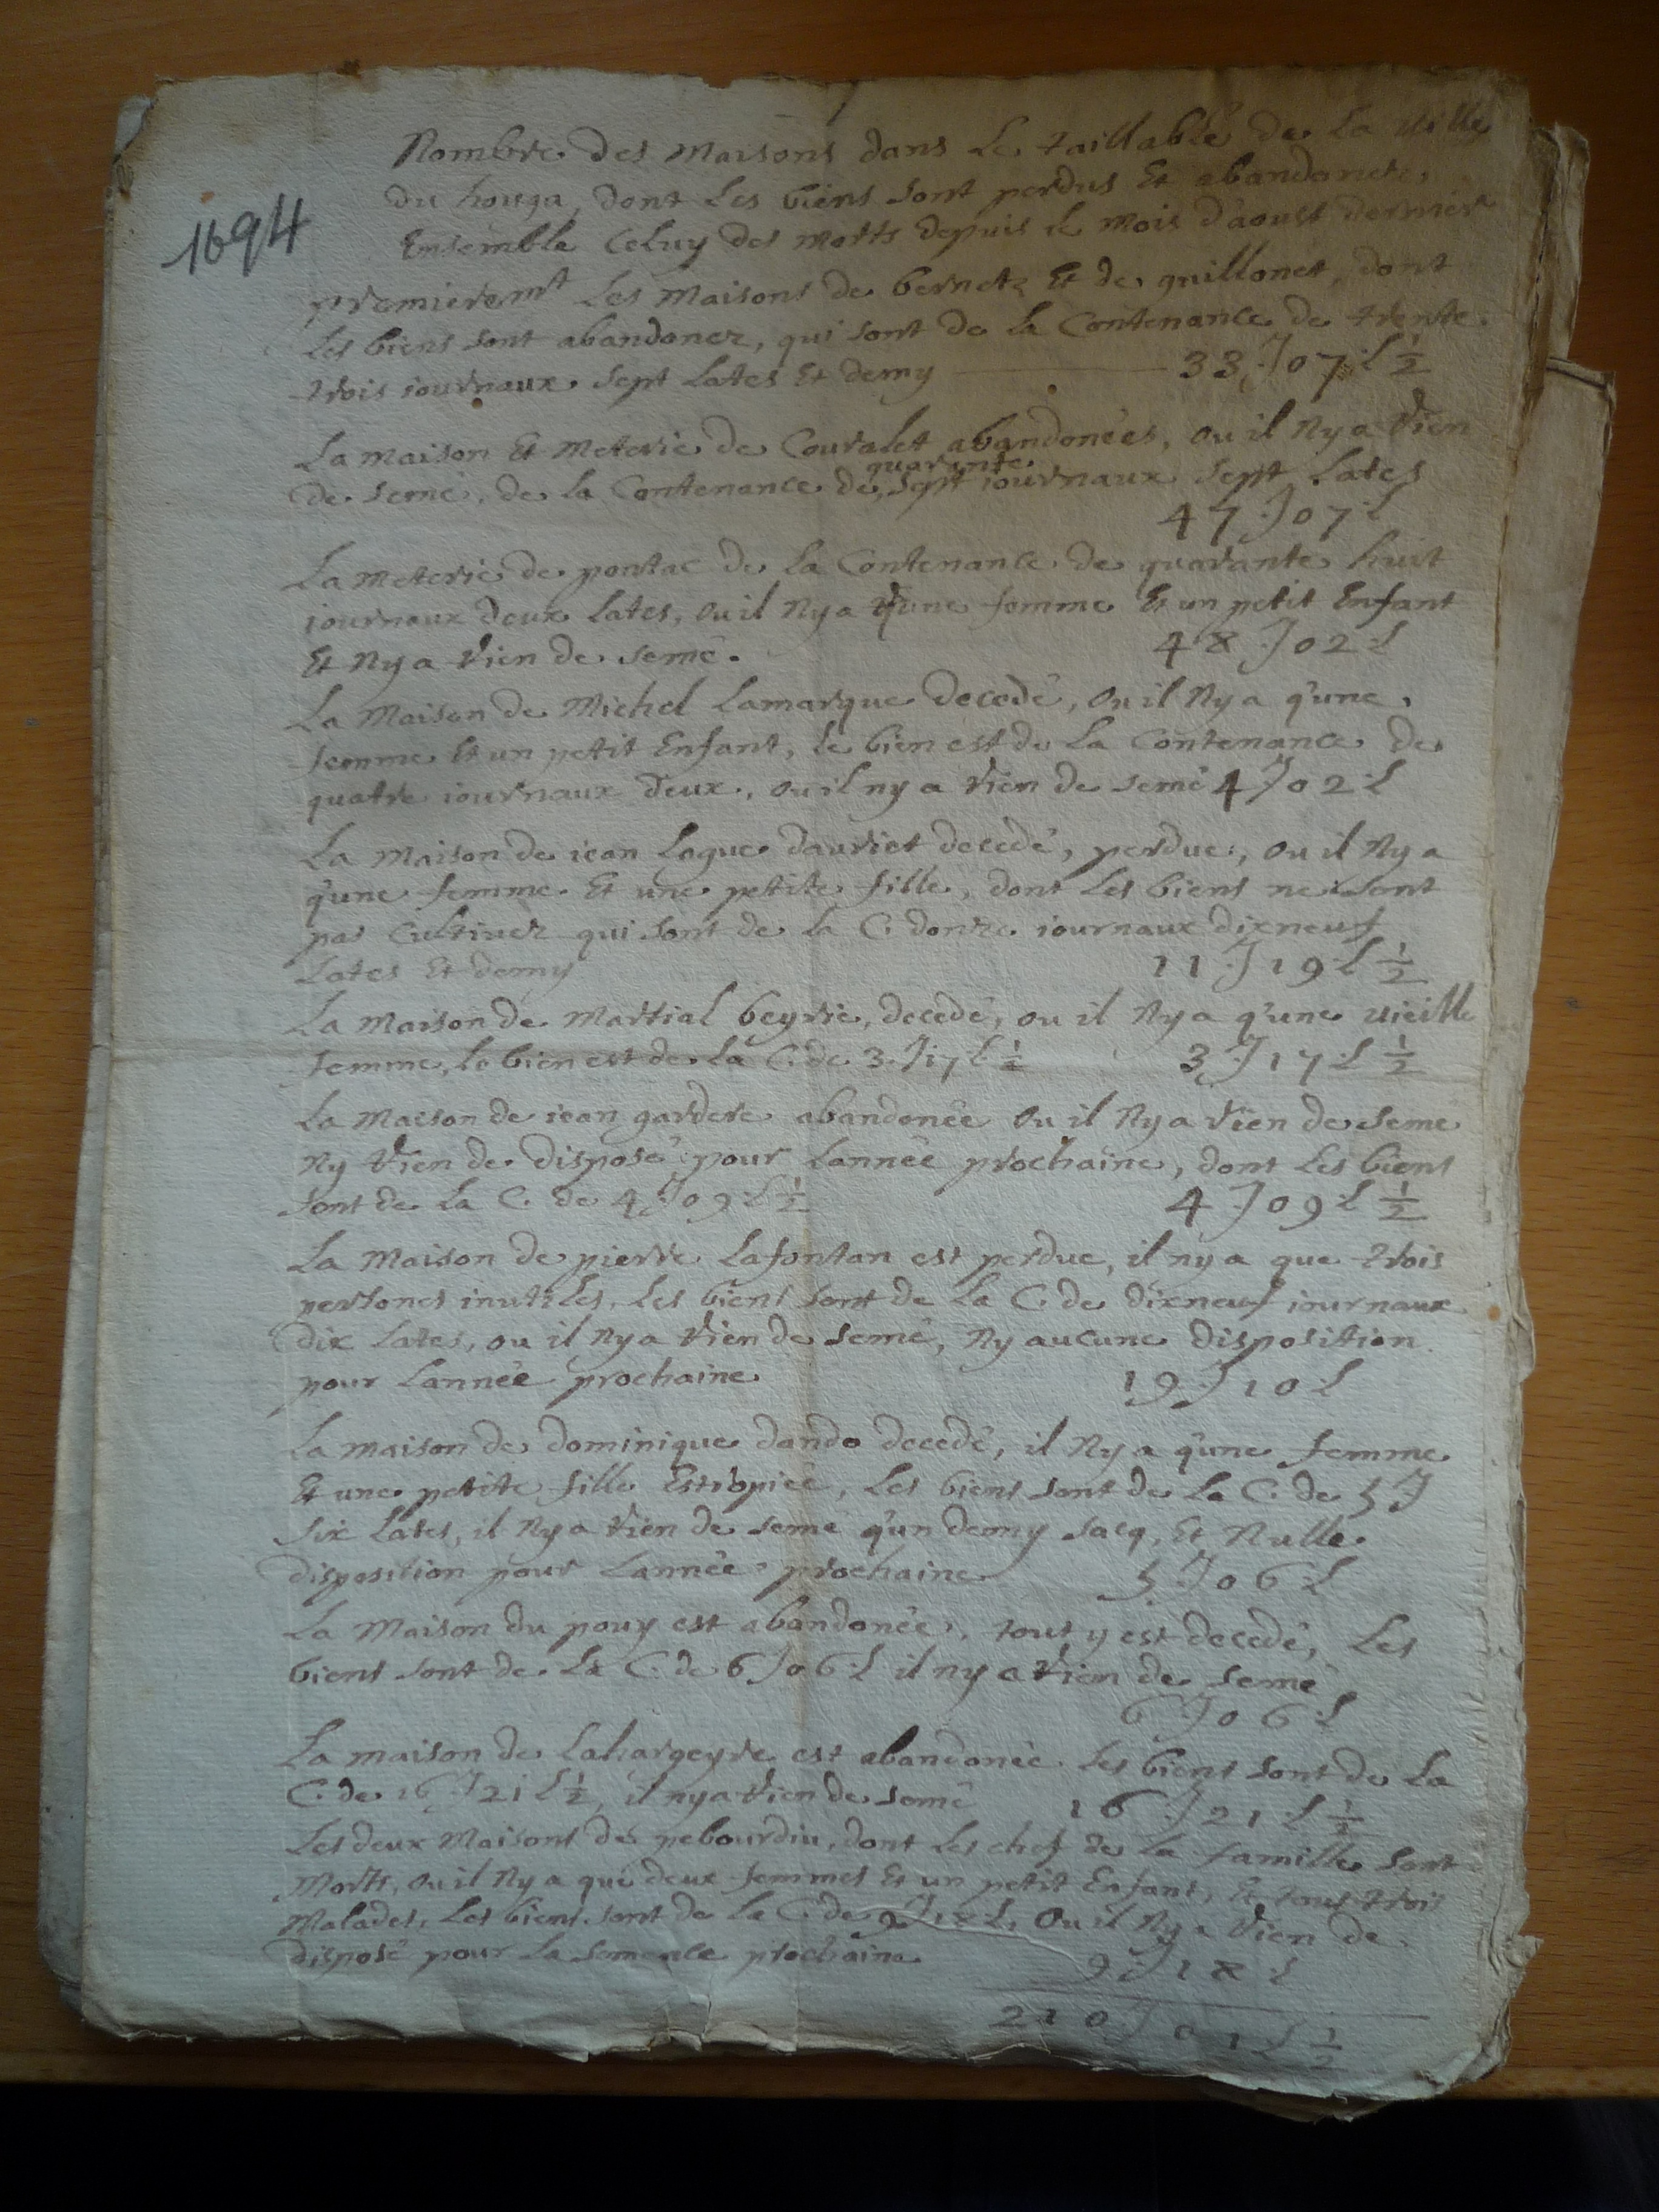 Nombre des Maisons dans Le taillable de La Ville
1694
du houga, dont Les biens sont perdus Et abandonez,
Ensemble Celuy des morts depuis le mois d'aoust dernier
premieremt Les Maisons de bernets Et de guillonet, dont
Les biens sont abandonez, qui sont de la Contenance de trente
trois journaux sept Lates Et demy 33 J 07 L ½
La maison Et Meterie de Couralet abandonées, ou il Ny a rien
quarante
de semé, de la Contenance de sept journaux sept Lates
47 J 07 L
La meterie de pontac de La Contenance de quarante huit
journaux deux lates, ou il Ny a qune femme Et un petit Enfant
Et Ny a rien de semé. 48 J 02 L
La Maison de Michel Lamarque decedé, ou il Ny a q'une
femme Et un petit Enfant, le bien est de La Contenance de
quatre journaux deux, ou il ny a rien de semé 4 J 02 L
La maison de jean Lague dauriet decedé, perdue, ou il Ny a
q'une femme Et une petite fille, dont Les biens ne sont
pas Cultivez qui sont de la C. donze journaux dixneuf
Lates Et demy 11 J 19 L ½
La maison de Martial beyrie, decedé, ou il Ny a q'une vieille
femme, le bien est de La C. de 3 J 17 L ½ 3 J 17 L ½
La Maison de jean gardere abandonée ou il Ny a rien de semé
Ny rien de disposé pour Lannée prochaine, dont Les biens
sont de La C. de 4 J 09 L ½ 4 J 09 L ½
La Maison de pierre Lafontan est perdue, il ny a que trois
persones inutiles, Les biens sont de La C. de dixneuf journaux
dix Lates, ou il Ny a rien de semé, Ny aucune disposition
pour Lannée prochaine 19 J 10 L
La maison de dominique dando decedé, il Ny a q'une femme
Et une petite fille Estropiée, Les biens sont de La C. de 5 J
six Lates, il Ny a rien de semé q'un demy sacq, Et Nulle
disposition pour Lannée prochaine 5 J 06 L
La Maison du pouy est abandonée, tout y est decedé, Les
biens sont de La C. de 6 J 06 L il ny a rien de semé
6 J 06 L
La maison de Lahargeyre est abandonée Les biens sont de La
C. de 16 J 21 L ½, il ny a rien de semé 16 J 21 L ½
Les deux Maisons de pebourdiu, dont Les chef de La famille sont
Morts, ou il Ny a que deux femmes Et un petit Enfant, Et tous trois
Malades, Les biens sont de La C. de 9 J 18 L, ou il Ny a rien de
disposé pour La semence prochaine 9 J 18 L
210 J 01 L ½